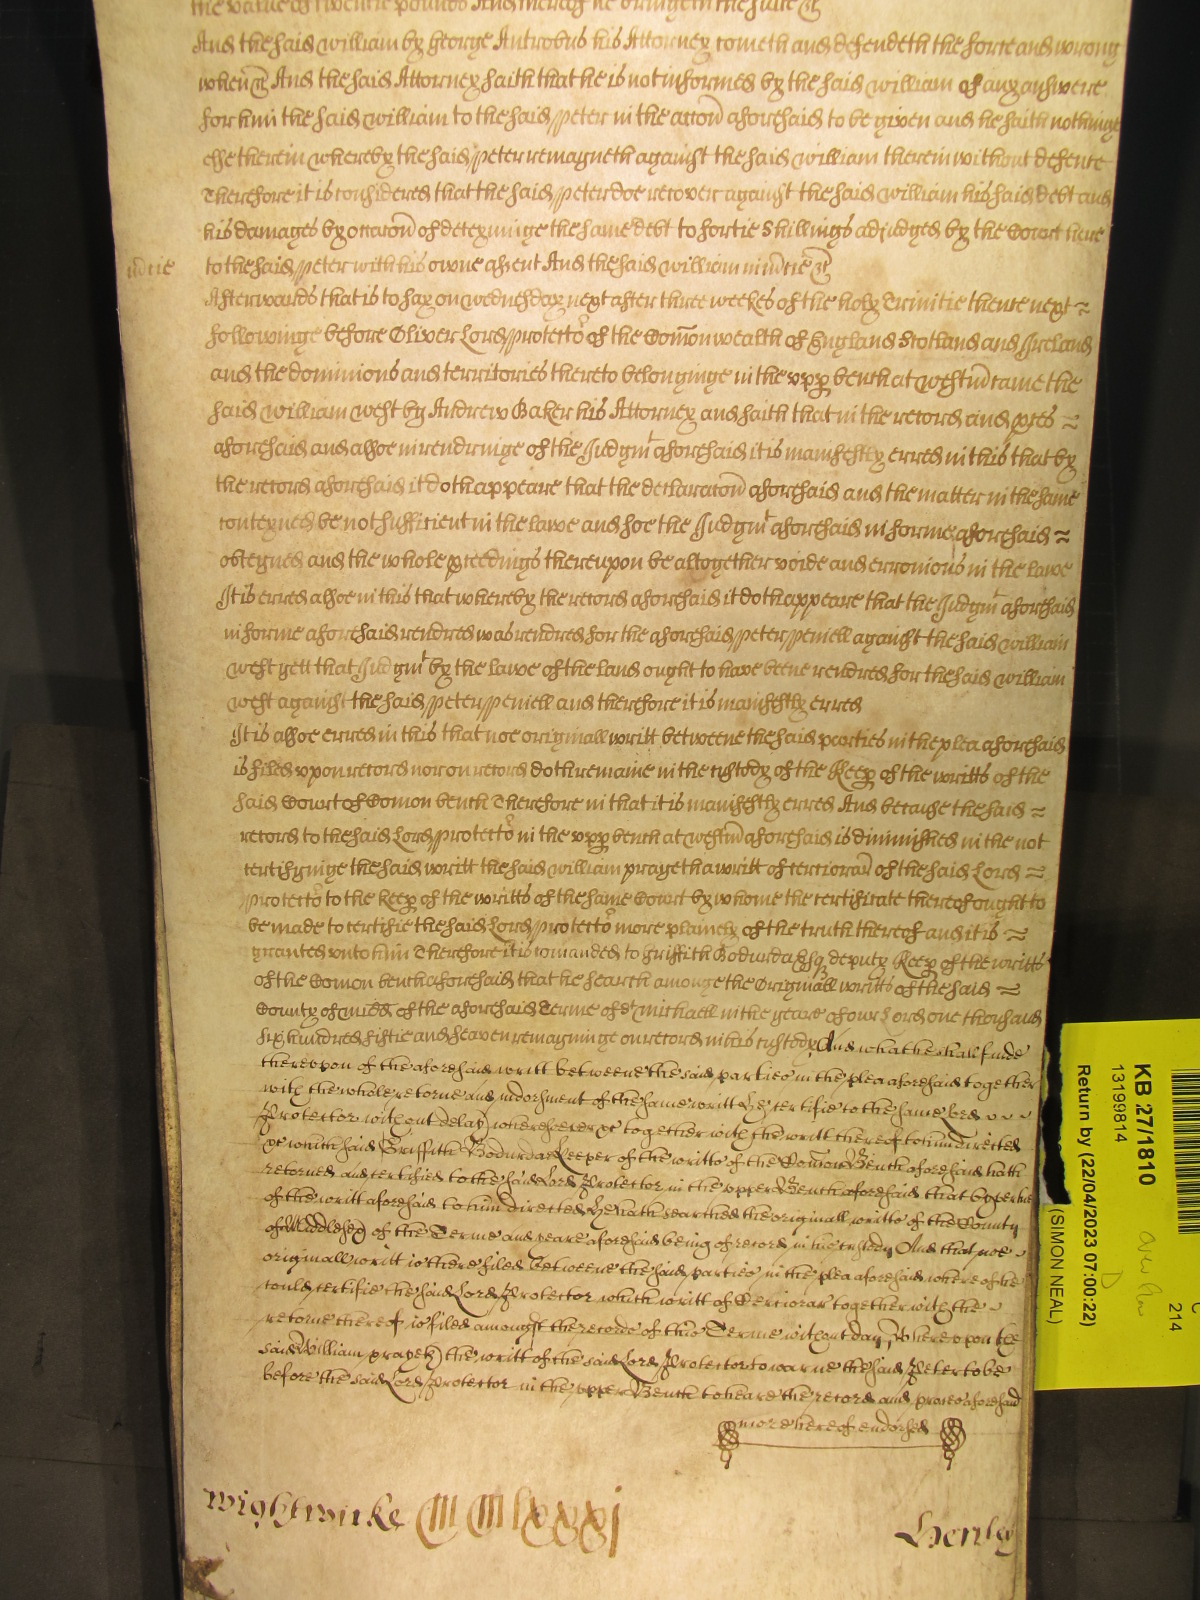 the value of twentie pounds And thereof he bringeth the suite &c
And the said William by George Antrobus his Attorney cometh and defendeth the force and wrong
when &c And the said Attorney saith that he is not informed by the said William of any answere
for him the said William to the said Peter in the accon aforesaid to be given and he saith nothinge
else therein whereby the said Peter remayneth against the said William therein without defence
Therefore it is considered that the said Peter doe recover against the said William his said debt and
his damages by occacon of deteyninge the same debt to fortie Shillings adjudged by the Court here
mcie
to the said Peter with his owne assent And the said William in mcie &c
Afterwards that is to say on Wednesday next after three weekes of the holy Trinitie thence next
followinge before Oliver Lord Protector of the Comonwealth of England Scotland and Ireland
and the dominions and territories thereto belonginge in the upp bench at Westm came the
said William West by Andrew Baker his Attorney and saith that in the record and pces
aforesaid and alsoe in rendringe of the Judgmt aforesaid it is manifestly erred in this that by
the record aforesaid it doth appeare that the declaracon aforesaid and the matter in the same
conteyned be not sufficient in the lawe and soe the Judgmt aforesaid in forme aforesaid
obteyned and the whole pceedings thereupon be altogether voide and erronious in the lawe
It is erred alsoe in this that whereby the record aforesaid it doth appeare that the Judgmt aforesaid
in forme aforesaid rendred was rendred for the aforesaid Peter Peniell against the said William
West yett that Judgmt by the lawe of the land ought to have beene rendred for the said William
West against the said Peter Peniell and therefore it is manifestly erred
It is alsoe erred in this that noe originall writt betweene the said parties in the plea aforesaid
is filed upon record nor on record doth remaine in the custody of the Keep of the writts of the
said Court of Comon bench Therefore in that it is manifestly erred And because the said
record to the said Lord Protector in the upp bench at Westm aforesaid is diminished in the not
certifyinge the said writt the said William prayeth a writt of certiorari of the said Lord
Protector to the Keep of the writts of the same Court by whome the certificate thereof ought to
be made to certifie the said Lord Protector more plainely of the truth thereof and it is
granted unto him Therefore it is comanded to Griffith Bodurda Esq deputy Keep of the writts
of the Comon bench aforesaid that he search amonge the Originall writts of the said
County of Midd of the aforesaid Terme of St Michaell in the yeare of our Lord one thousand
six hundred fiftie and seaven remayninge on record in his custody And what he shall finde
thereupon of the aforesaid writt betweene the said parties in the plea aforesaid together
with the whole retorne and indorsment of the same writt he certifie to the same Lord
Protector without delay wheresoever &c together with the writt thereof to him directed
&c which said Griffith Bodurda Keeper of the writts of the Comon Bench aforesaid hath
retorned and certified to the said Lord Protector in the upper Bench aforesaid that by vertue
of the writt aforesaid to him directed he hath searched the originall writts of the County
of Middlesex of the Terme and yeare aforesaid being of record in his custody And that noe
originall writt is there filed betweene the said parties in the plea aforesaid whereof he
could certifie the said Lord Protector which writt of Cerciorar together with the
retorne thereof is filed amongst the records of this Terme without day Whereupon the
said William prayeth the writt of the said Lord Protector to warne the said Peter to be
before the said Lord Protector in the upper Bench to heare the record and proces aforesaid
more hereof endorsed
Wightwicke
Henley
KB 27/1810
13199814
Return by (22/04/2023 07:00:22)
(SIMON NEAL)
214
C